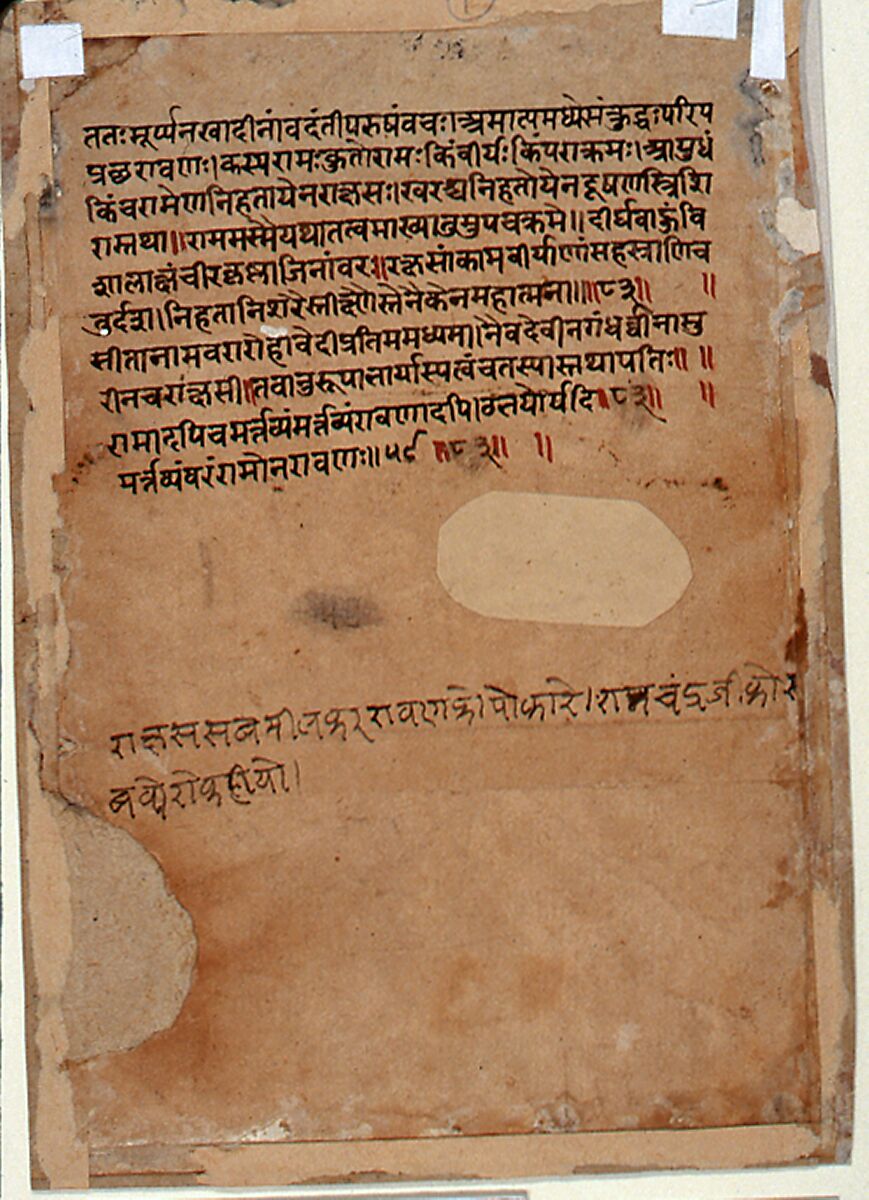 ततःसूर्प्पनखादीनांवदंतीपरुषंवचः।अमात्यमध्येसंक्रुद्धःपरिप
प्रछरावणः।कस्यरामःकुतोरामःकिंवीर्यःकिंपराक्रमः।आयुधं
किंचरामेणनिहतायेनराक्षसः।खरश्चनिहतोयेनदूषणस्त्रिशि
रास्तथा॥राममस्मैयथातत्वमाख्यातुमुपचक्रमे॥दीर्घबाहुंवि
शालाक्षंचीरकृष्णाजिनांवरः॥रक्षसांकामवीर्याणांसहस्त्राणिच
तुर्दश।निहतानिशरैस्तीक्ष्णैस्तेनैकेनमहात्मना॥॥८३॥ ॥
सीतानामवरारोहावेदीप्रतिममध्यमा।नैवदेवीनगंधर्व्वीनासु
रीनचराक्षसी॥तवानुरूपाभार्यास्यत्वंचतस्यास्तथापतिः॥ ॥
रामादपिचमर्त्तव्यंमर्त्तव्यंरावणादपि।उभयोर्यदि॥८३॥ ॥
मर्त्तव्यंवरंरामोनरावणः॥५९ ॥८३॥ ॥
राक्षससबमीलकररावणकोपोकारे।रामचंद्रजीको